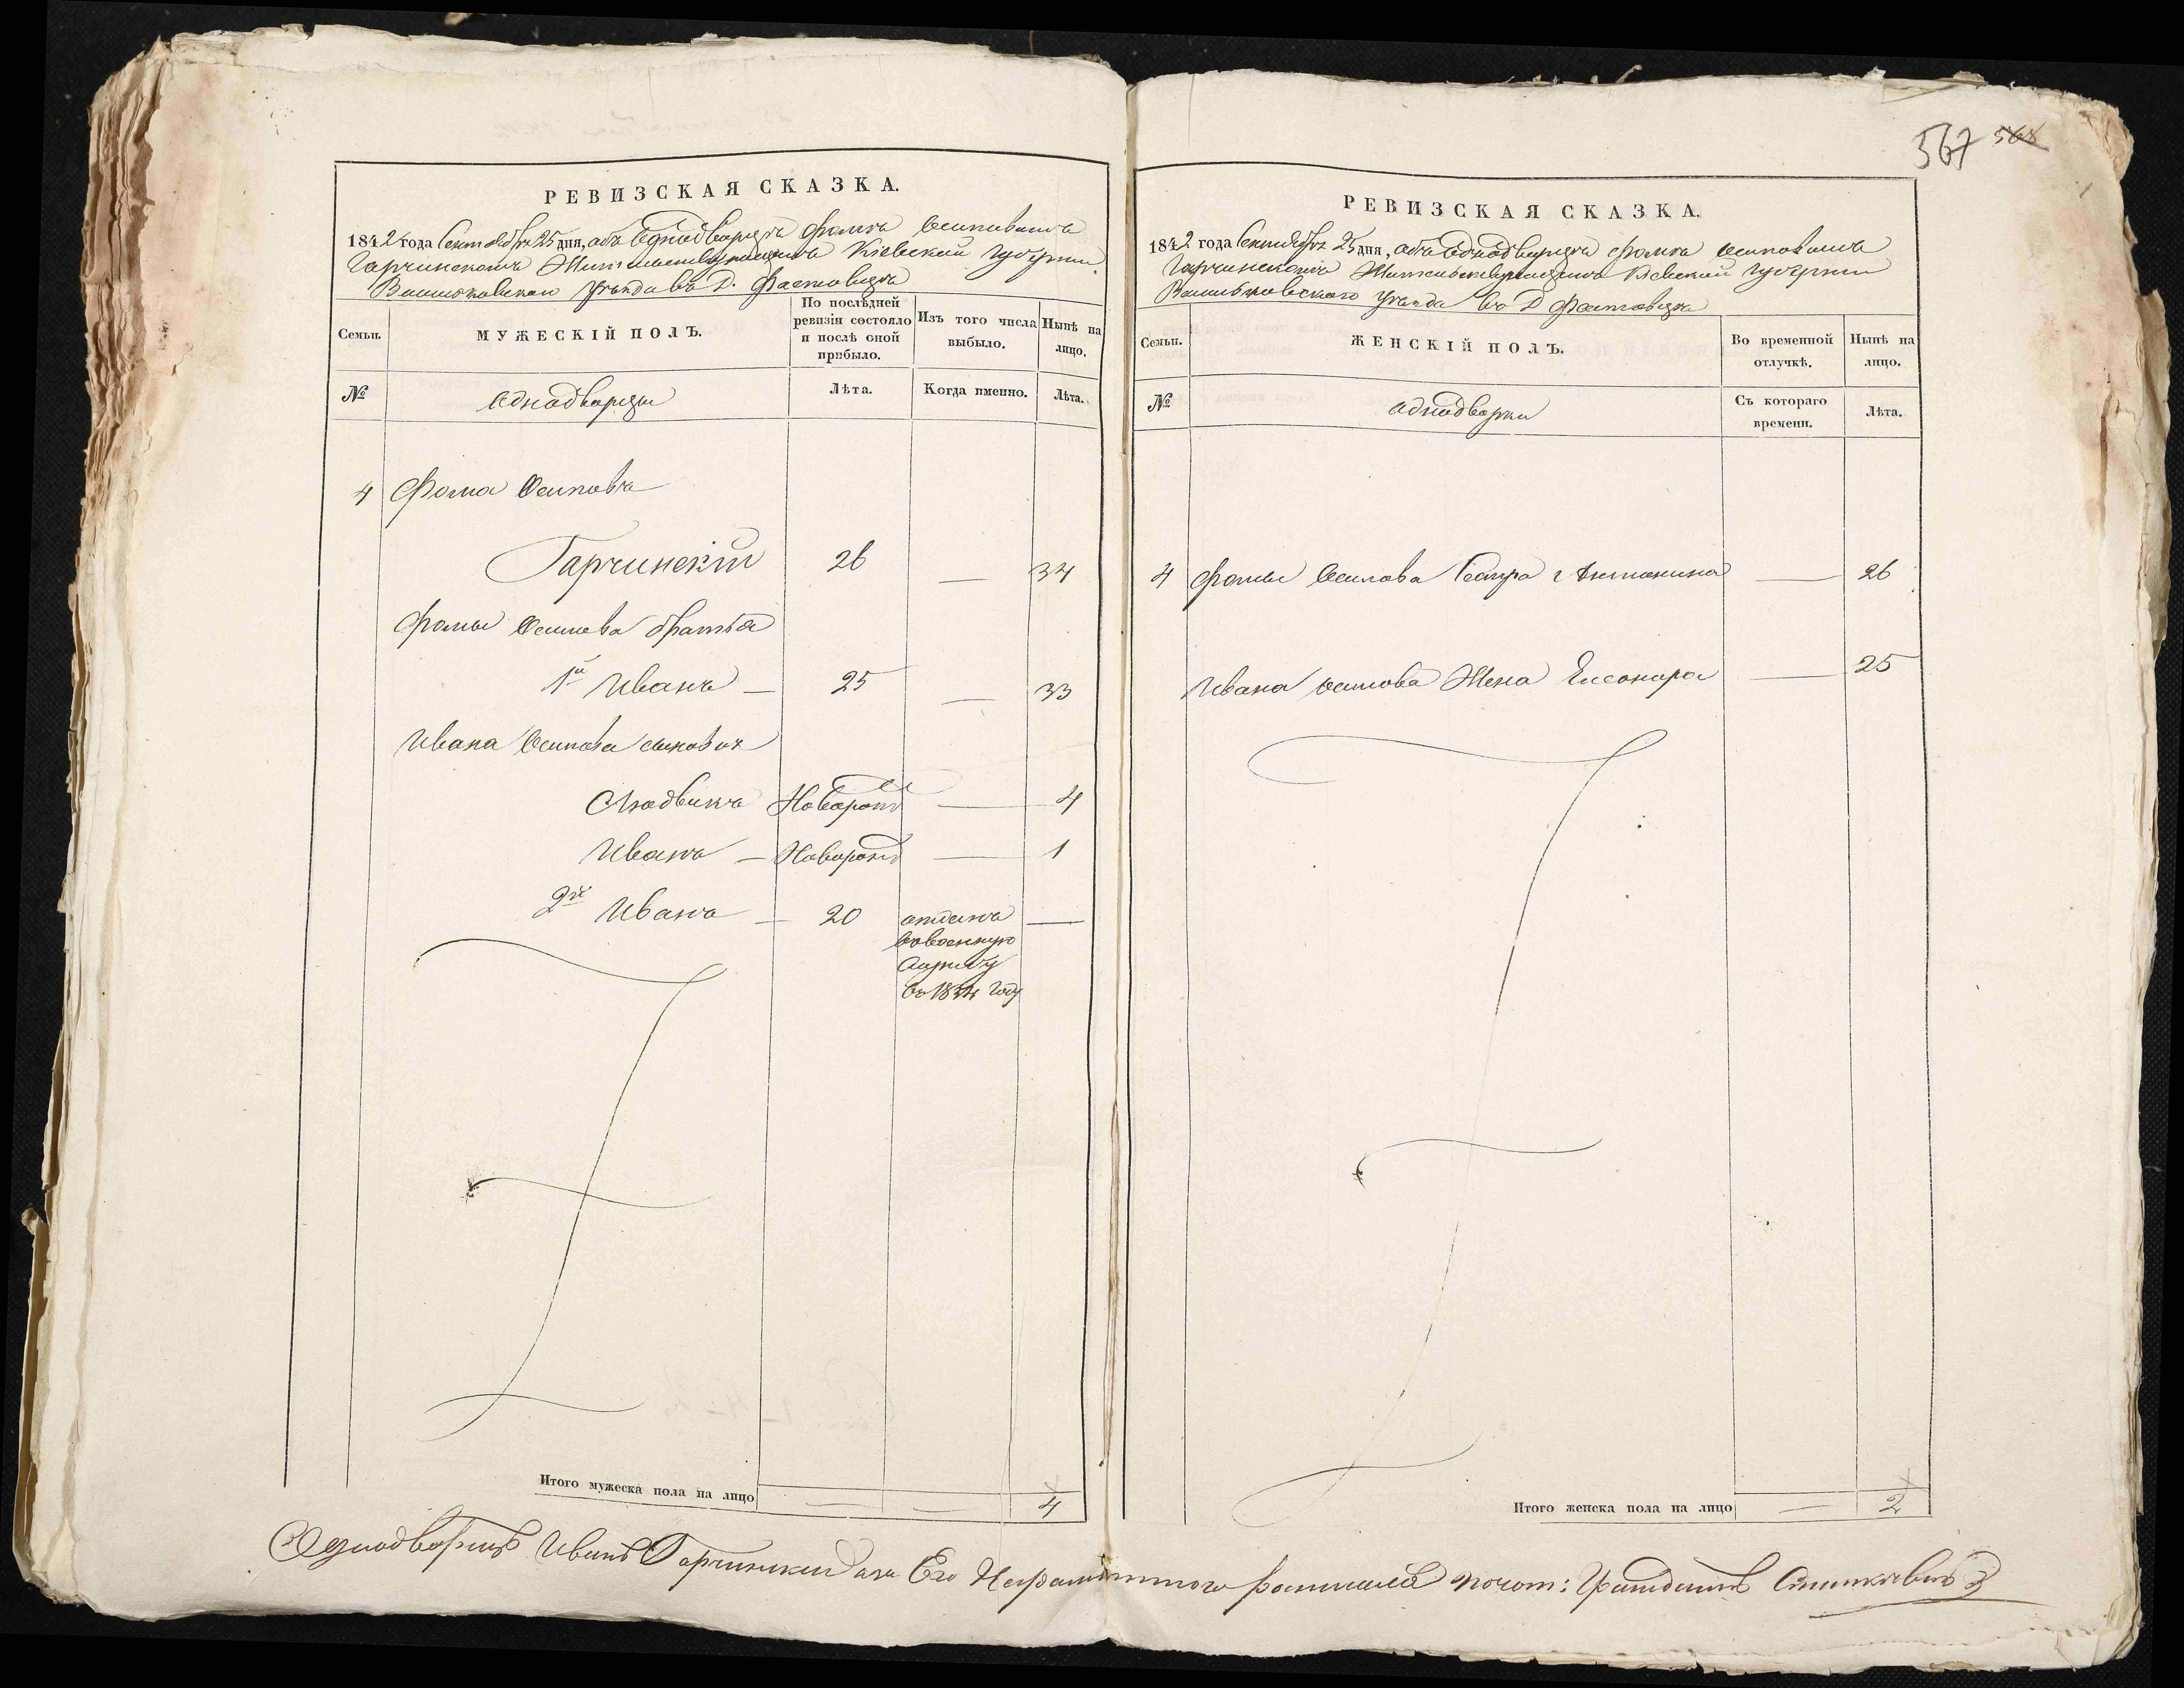 567 568
РЕВИЗСКАЯ СКАЗКА.
1842 года Сентября 25 дня, объ Однодворцѣ Фомѣ Осиповомъ
Гарчинскомъ Жительствующемъ Кіевской Губерніи
Васильковскаго Уѣзда въ Д. Фастовцѣ
Семьи.
МУЖЕСКІЙ ПОЛЪ.
По послѣдней ревизіи состояло и послѣ оной прибыло.
Изъ того числа выбыло.
Нынѣ на лицо.
№
Однодворцы
Лѣта.
Когда именно.
Лѣта.
4 Фома Осиповъ
Гарчинскій 26 — 34
Фомы Осипова братья
1й Иванъ — 25 — 33
Ивана Осипова сыновья
Людвикъ Новорожд — 4
Иванъ — Новорожд — 1
2й Иванъ — 20 отданъ —
въ военную
службу
въ 1834 году
Итого мужеска пола на лицо — — 4
РЕВИЗСКАЯ СКАЗКА.
1842 года Сентября 25 дня, объ Однодворцѣ Фомѣ Осиповомъ
Гарчинскомъ Жительствующемъ Кіевской Губерніи
Васильковскаго Уѣзда въ Д Фастовцѣ
Семьи.
ЖЕНСКІЙ ПОЛЪ.
Во временной отлучкѣ.
Нынѣ на лицо.
№
Однодворки
Съ котораго времени.
Лѣта.
4 Фомы Осипова Сестра Антонина — 26
Ивана Осипова Жена Елеонора — 25
Итого женска пола на лицо — 2
Однодворецъ Иванъ Гарчинскій а за Его Неграмотного росписался